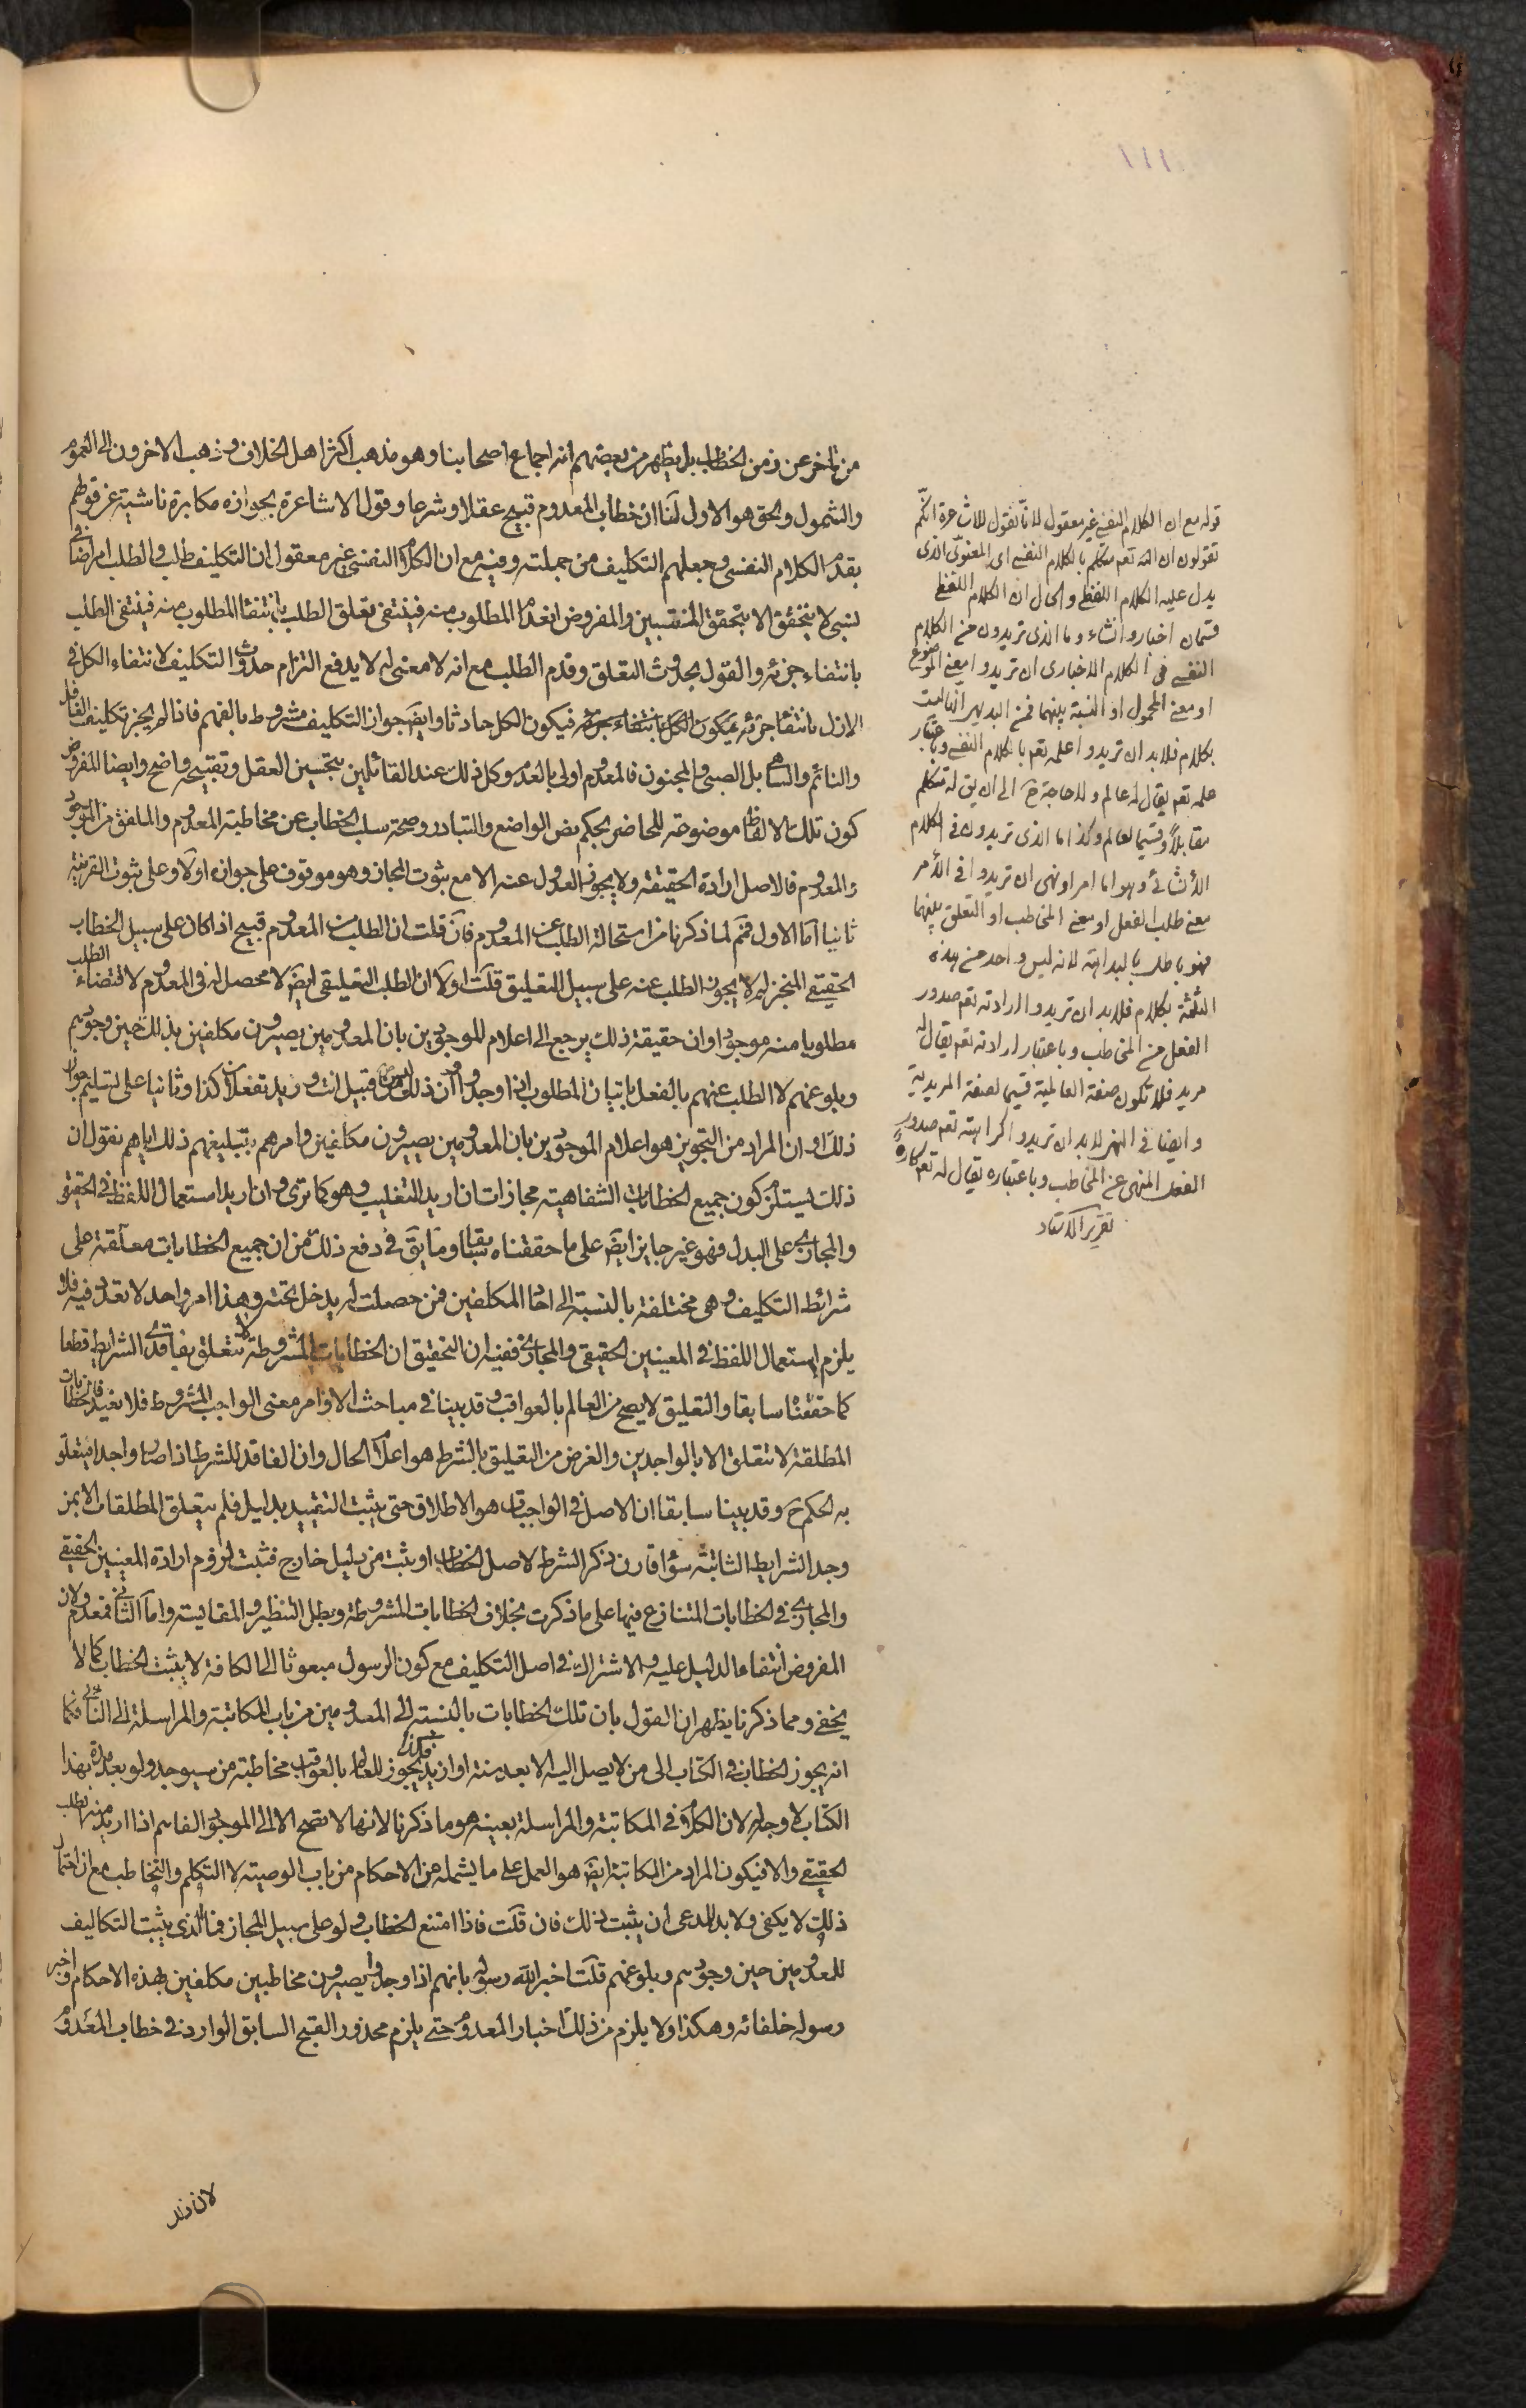 ١١١
من تاخر عن زمن الخطاب بل يظهر من بعضهم انه اجماع اصحابنا وهو مذهب اكثر اهل الخلاف وذهب الاخرون الى العموم
والشمول والحق هو الاول لنا ان خطاب المعدوم قبيح عقلا وشرعا وقول الاشاعرة بجوازه مكابرة ناشية عن قولهم
بقدم الكلام النفسى وجعلهم التكليف من جملته وفيه مع ان الكلام النفسى غير معقول ان التكليف طلب والطلب امر اضافى
نسبى لا يتحقق الا بتحقق المنتسبين والمفروض انعدام المطلوب منه فينتفى تعلق الطلب بانتفاء المطلوب منه فينتفى الطلب
بانتفاء جزئه والقول بحدوث التعلق وقدم الطلب مع انه لا معنى له لا يدفع التزام حدوث التكليف لانتفاء الكل فى
الازل بانتفاء جزئه فيكون الكل بانتفاء جزئه فيكون الكل حادثا وايضا جواز التكليف مشروط بالفهم فاذا لم يجز تكليف الغافل
والنائم والساهى بل الصبى والمجنون فالمعدوم اولى بالعدم وكل ذلك عند القائلين بتحسين العقل وتقبيحه واضح وايضا المفروض
كون تلك الالفاظ موضوعة للحاضر بحكم نص الواضع والتبادر وصحة سلب الخطاب عن مخاطبة المعدوم والملفق من الموجود
والمعدوم فالاصل ارادة الحقيقة ولا يجوز العدول عنه الا مع ثبوت المجاز وهو موقوف على جوازه اولا وعلى ثبوت القرينة
ثانيا اما الاول فنم لما ذكرنا من استحالة الطلب عن المعدوم فان قلت ان الطلب من المعدوم قبيح اذا كان على سبيل الخطاب
الحقيقى المنجز لم لا يجوز الطلب عنه على سبيل التعليق قلت اولا ان الطلب التعليقى ايضا لا محصل له فى المعدوم لاقتضاء الطلب
مطلوبا منه موجودا وان حقيقة ذلك يرجع الى اعلام للموجودين بان المعدومين يصيرون مكلفين بذلك حين وجودهم
وبلوغهم لا الطلب عنهم بالفعل باتيان المطلوب اذا وجدوا وان ذلك من قبيل انت وزيد تفعلان كذا وثانيا على تسليم جواز
ذلك او ان المراد من التجويز هو اعلام الموجودين بان المعدومين يصيرون مكلفين وامرهم بتبليغهم ذلك اياهم نقول ان
ذلك يستلزم كون جميع الخطابات الشفاهية مجازات ان اريد التغليب وهو كما ترى وان اريد استعمال اللفظ فى الحقيقى
والمجازى على البدل فهو غير جايز ايضا على ما حققناه سابقا وما يق فى دفع ذلك من ان جميع الخطابات معلقة على
شرائط التكليف وهى مختلفة بالنسبة الى احاد المكلفين فمن حصلت له يدخل تحته وهذا امر واحد لا تعدد فيه فلا
يلزم استعمال اللفظ فى المعنيين الحقيقى والمجازى ففيه ان التحقيق ان الخطابات المشروطة لا تتعلق بفاقدى الشرايط قطعا
كما حققنا سابقا والتعليق لا يصح من العالم بالعواقب وقد بينا فى مباحث الاوامر معنى الواجب المشروط فلا نعيد فالخطابات
المطلقة لا تتعلق الا بالواجدين والغرض من التعليق بالشرط هو اعلام الحال وان الفاقد للشرط اذا صار واجدا يتعلق
به الحكم ح وقد بينا سابقا ان الاصل فى الواجبات هو الاطلاق حتى يثبت التقييد بدليل فلم يتعلق المطلقات الا بمن
وجد الشرايط الثابتة سواء قارن ذكر الشرط لاصل الخطاب او ثبت من دليل خارج فثبت لزوم ارادة المعنيين الحقيقى
والمجازى فى الخطابات المتنازع فيها على ما ذكرت بخلاف الخطابات المشروطة وبطل التنظير والمقايسة واما الثانى فمعدوم لان
المفروض انتفاء الدليل عليه والاشتراك فى اصل التكليف مع كون الرسول مبعوثا الى الكافة لا يثبت الخطاب كما لا
يخفى ومما ذكرنا يظهر ان القول بان تلك الخطابات بالنسبة الى المعدومين من باب المكاتبة والمراسلة الى النائى فكما
انه يجوز الخطاب فى الكتاب الى من لا يصل اليه الا بعد سنة او ازيد فكذا يجوز للعالم بالعواقب مخاطبة من سيوجد ولو بعد مدة بهذا
الكتاب لا وجه له لان الكلام فى المكاتبة والمراسلة بعينه هو ما ذكرنا لانها لا تصح الا الى الموجود الفاهم اذا اريد منه الطلب
الحقيقى والا فيكون المراد من المكاتبة ايضا هو العمل على ما يشمله من الاحكام من باب الوصية لا التكلم والتخاطب مع ان احتمال
ذلك لا يكفى ولا بد للمدعى ان يثبت ذلك فان قلت فاذا امتنع الخطاب ولو على سبيل المجاز فما الذى يثبت التكاليف
للمعدومين حين وجودهم وبلوغهم قلت اخبر الله رسوله بانهم اذا وجدوا يصيرون مخاطبين مكلفين بهذه الاحكام واخبر
رسوله خلفائه وهكذا ولا يلزم من ذلك اخبار المعدوم حتى يلزم محذور القبح السابق الوارد فى خطاب المعدوم
لان ذلك
قوله مع ان الكلام النفسى غير معقول لانا نقول للاشاعرة انكم
تقولون ان الله تعم متكلم بالكلام النفسى اى المعنوى الذى
يدل عليه الكلام اللفظى والحال ان الكلام اللفظى
قسمان اخبار وانشاء وما الذى تريدون من الكلام
النفسى فى الكلام الاخبارى ان تريدوا معنى الموضوع
او معنى المحمول او النسبة بينهما فمن البديهى انها ليست
بكلام فلا بد ان تريدوا علمه تعم بالكلام النفسى وباعتبار
علمه تعم يقال له عالم ولا حاجة ح الى ان يق له متكلم
مقابلا وقسيما لعالم وكذا ما الذى تريدون فى الكلام
الانشائى وهو اما امر او نهى ان تريدوا فى الامر
معنى طلب الفعل او معنى المخاطب او التعلق بينهما
فهو باطل بالبداهة لانه ليس واحد من هذه
الثلثة بكلام فلا بد ان تريدوا ارادته تعم صدور
الفعل من المخاطب وباعتبار ارادته تعم يقال له
مريد فلا تكون صفة العالمية قسيما لصفة المريدية
وايضا فى النهى لا بد ان تريدوا كراهته تعم صدور
الفعل المنهى عن المخاطب وباعتباره يقال له تعم كاره
تقرير الاستاد